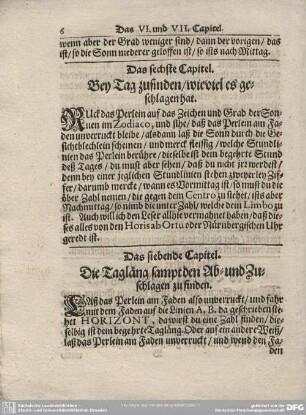 6 Das VI. und VII. Capitel.
wenn aber der Grad weniger sind/ dann der vorigen/ das
ist/ so die Sonn niederer geloffen ist/ so ists nach Mittag.
Das sechste Capitel.
Bey Tag zufinden/ wieviel es ge-
schlagen hat.
RUck das Perlein auf das Zeichen und Grad der Son-
nen im Zodiaco, und sihe/ daß das Perlein am Fa-
den unverruckt bleibe/ alsdann laß die Sonn durch die Ge-
sichtblechlein scheinen/ und merck fleissig/ welche Stundli-
nien das Perlein berühre/ dieselbe ist dein begehrte Stund
deß Tages/ du must aber sehen/ daß du nicht irr werdest/
denn bey einer jeglichen Stundlinien stehen zweyerley Zif-
fer/ darumb mercke/ wann es Vormittag ist/ so must du die
über Zahl nemen/ die gegen dem Centro zu stehet/ ists aber
Nachmittag/ so nimb die unter Zahl/ welche dem Limbo zu
ist. Auch will ich den Leser allhie vermahnet haben/ daß die-
ses alles von den Horis ab Ortu oder Nürnbergischen Uhr
geredt ist.
Das siebende Capitel.
Die Tagläng sampt den Ab- und Zu-
schlagen zu finden.
LAß das Perlein am Faden also unverruckt/ und fahr
mit dem Faden auf die Linien A. B. da geschrieben ste-
het HORIZONT, da wirst du eine Zahl finden/ die-
selbig ist dein begehrte Tagläng. Oder auf ein andere Weiß/
laß das Perlein am Faden unverruckt/ und wend den Fa-
den